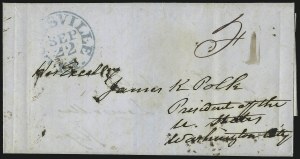 SVILLE
SEP
22
James K Polk
President of the
U. States
Washington City